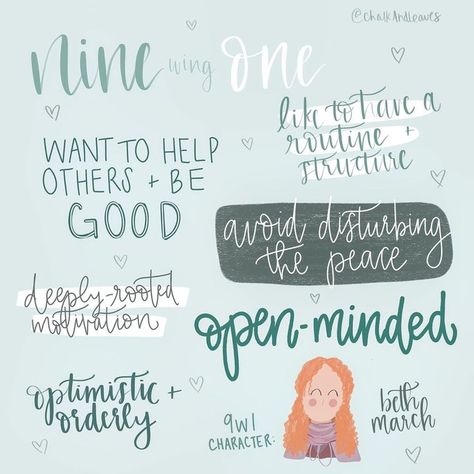 @chalkAndleaves
nine wing one
like to have a
routine +
structure
WANT TO HELP
OTHERS + BE
GOOD
avoid disturbing
the peace
deeply-rooted
motivation
open-minded
optimistic +
orderly
9w1
CHARACTER:
beth
march